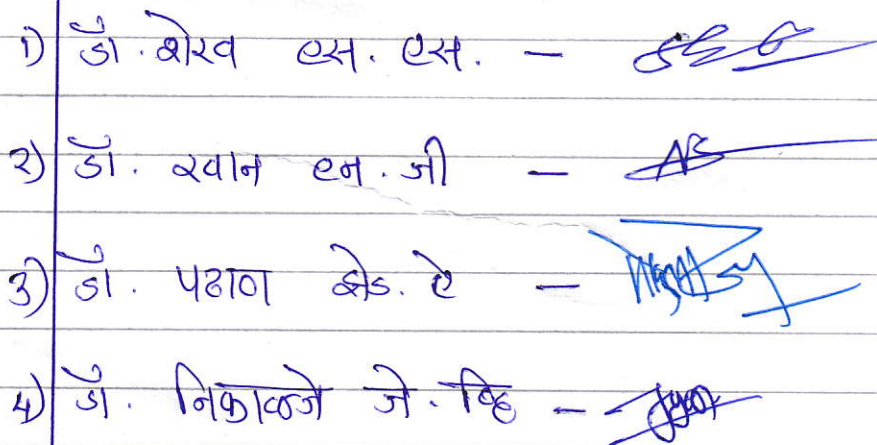 १) डॉ. शेख एस. एस. -
२) डॉ. खान एन. जी -
३) डॉ. पठाण झेड. ऐ -
४) डॉ. निकाळजे जे. व्हि -